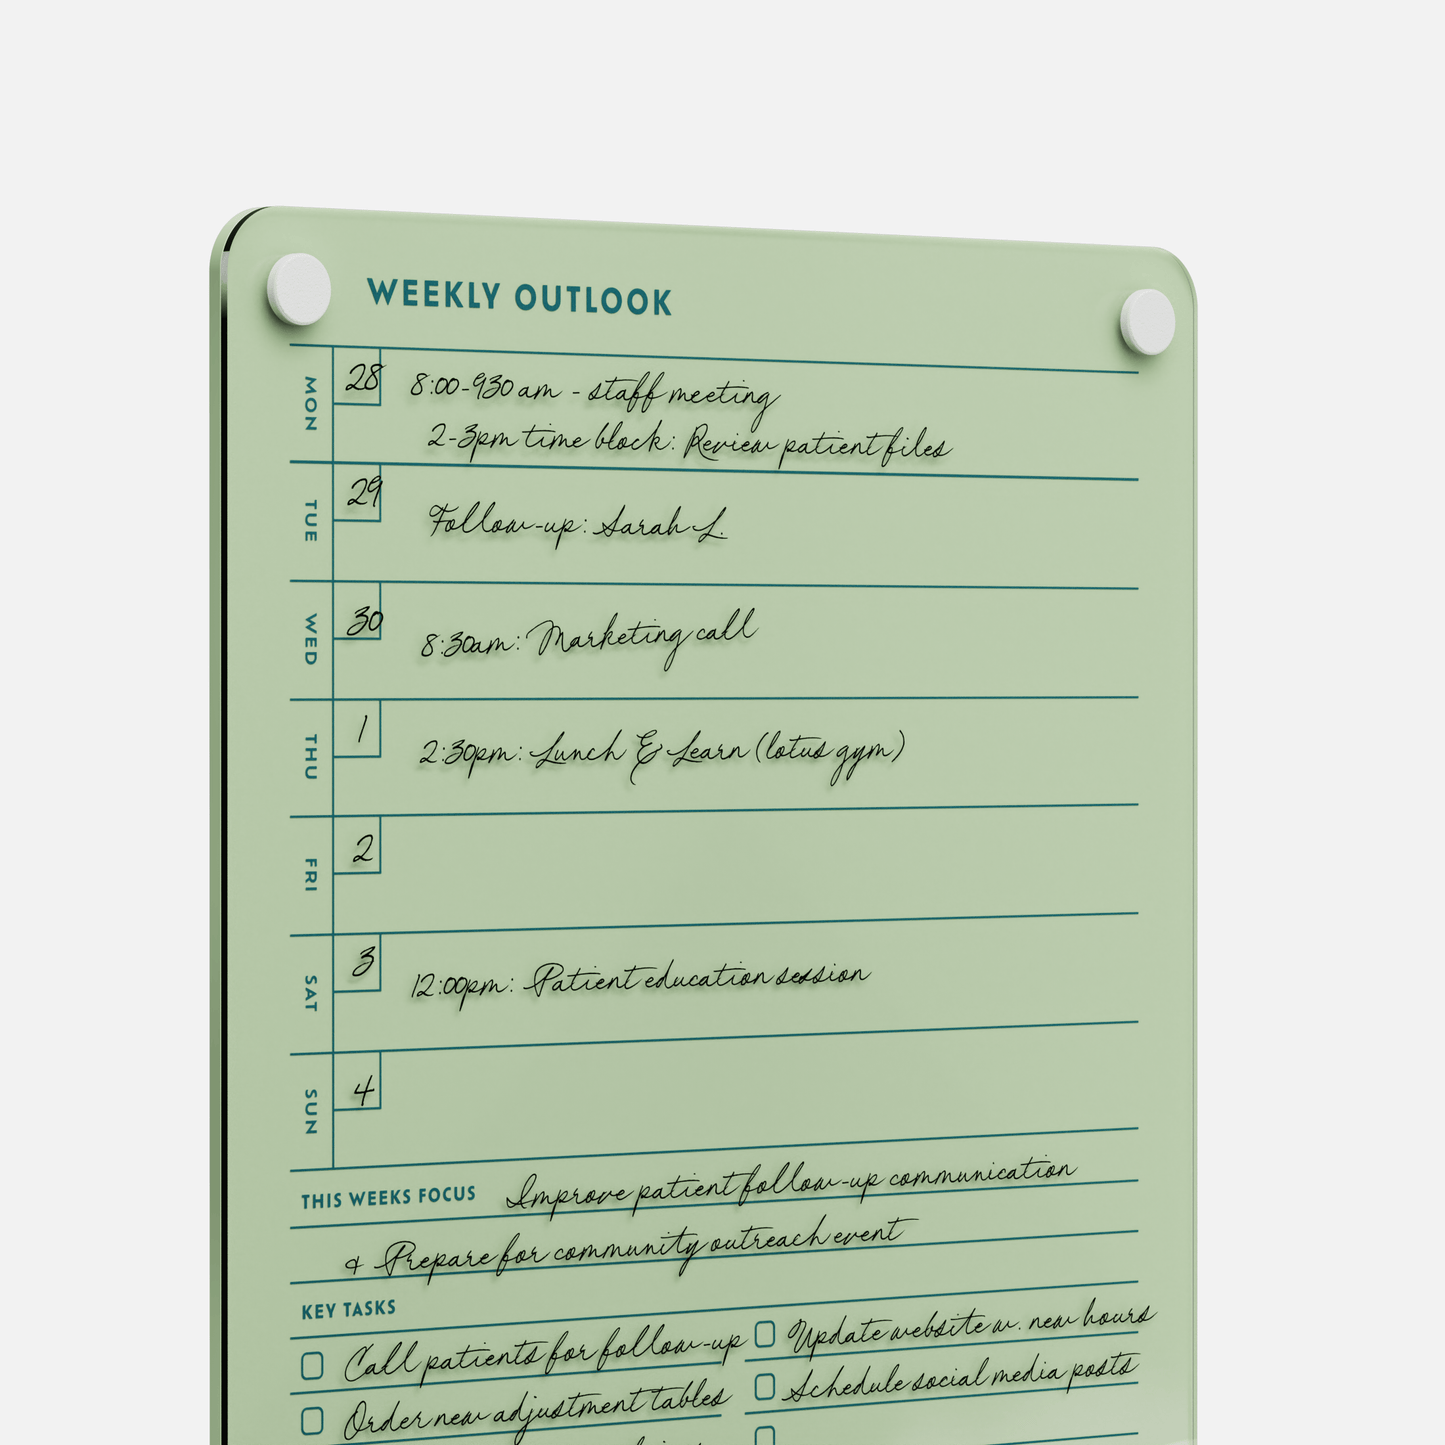 WEEKLY OUTLOOK
MON 28 8:00-930am - staff meeting
2-3pm time block: Review patient files
TUE 29 Follow-up: Sarah L.
WED 30 8:30am: Marketing call
THU 1 2:30pm: Lunch & Learn (lotus gym)
FRI 2
SAT 3 12:00pm: Patient education session
SUN 4
THIS WEEKS FOCUS Improve patient follow-up communication
& Prepare for community outreach event
KEY TASKS
Call patients for follow-up
Update website w. new hours
Order new adjustment tables
Schedule social media posts